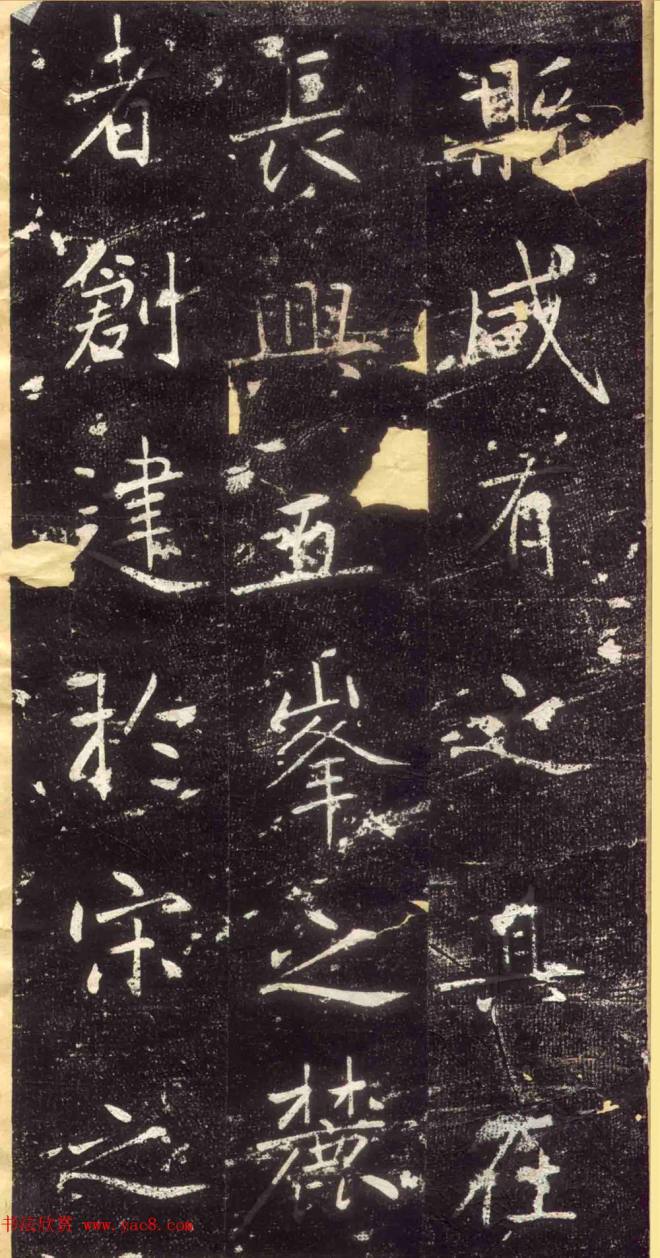 縣咸有之其在
長興五峯之麓
者創建於宋之
书法欣赏 www.yac8.com